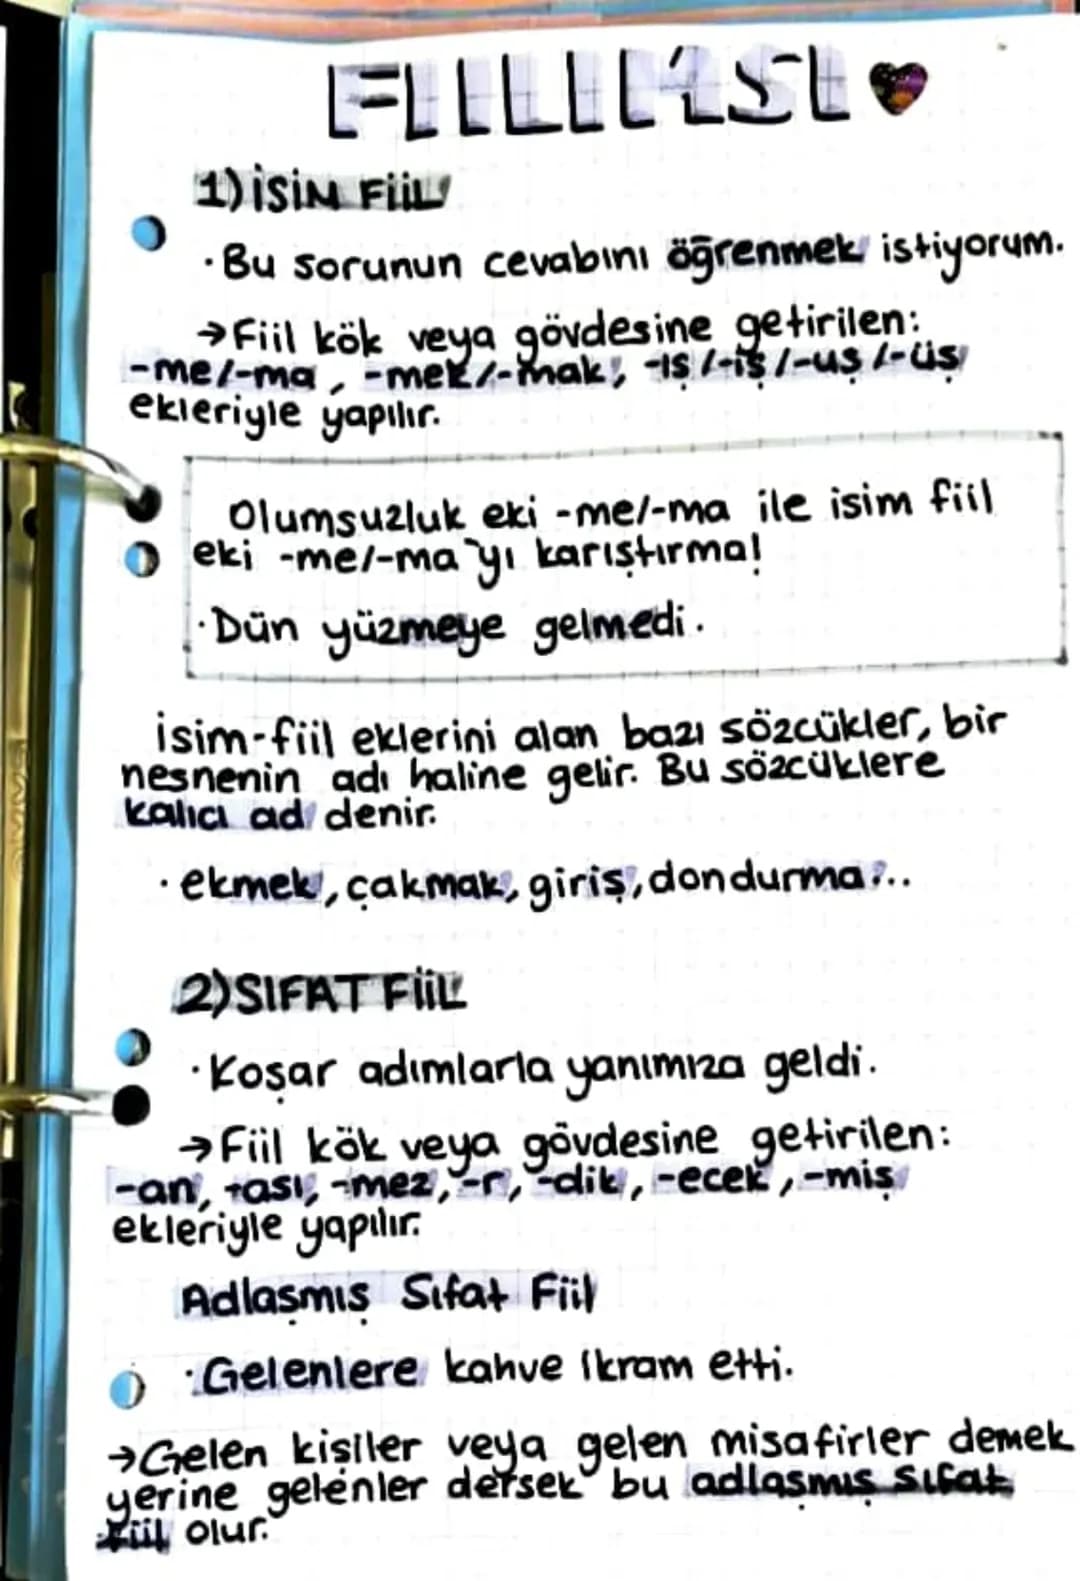 FIILIMSI
1) İSİM FİİL
·Bu sorunun cevabını öğrenmek istiyorum.
→Fiil kök veya gövdesine getirilen:
-me/-ma, -mek/-mak, -ış/-iş/-uş/-üş
ekleriyle yapılır.
Olumsuzluk eki -me/-ma ile isim fiil
eki -me/-ma'yı karıştırma!
·Dün yüzmeye gelmedi.
İsim-fiil eklerini alan bazı sözcükler, bir
nesnenin adı haline gelir. Bu sözcüklere
kalıcı ad denir.
·ekmek, çakmak, giriş, dondurma...
2) SIFAT FİİL
·Koşar adımlarla yanımıza geldi.
→Fiil kök veya gövdesine getirilen:
-an, -ası, -mez, -r, -dik, -ecek, -miş
ekleriyle yapılır.
Adlaşmış Sıfat Fiil
·Gelenlere kahve ikram etti.
→Gelen kişiler veya gelen misafirler demek
yerine gelenler dersek bu adlaşmış sıfat
fiil olur.